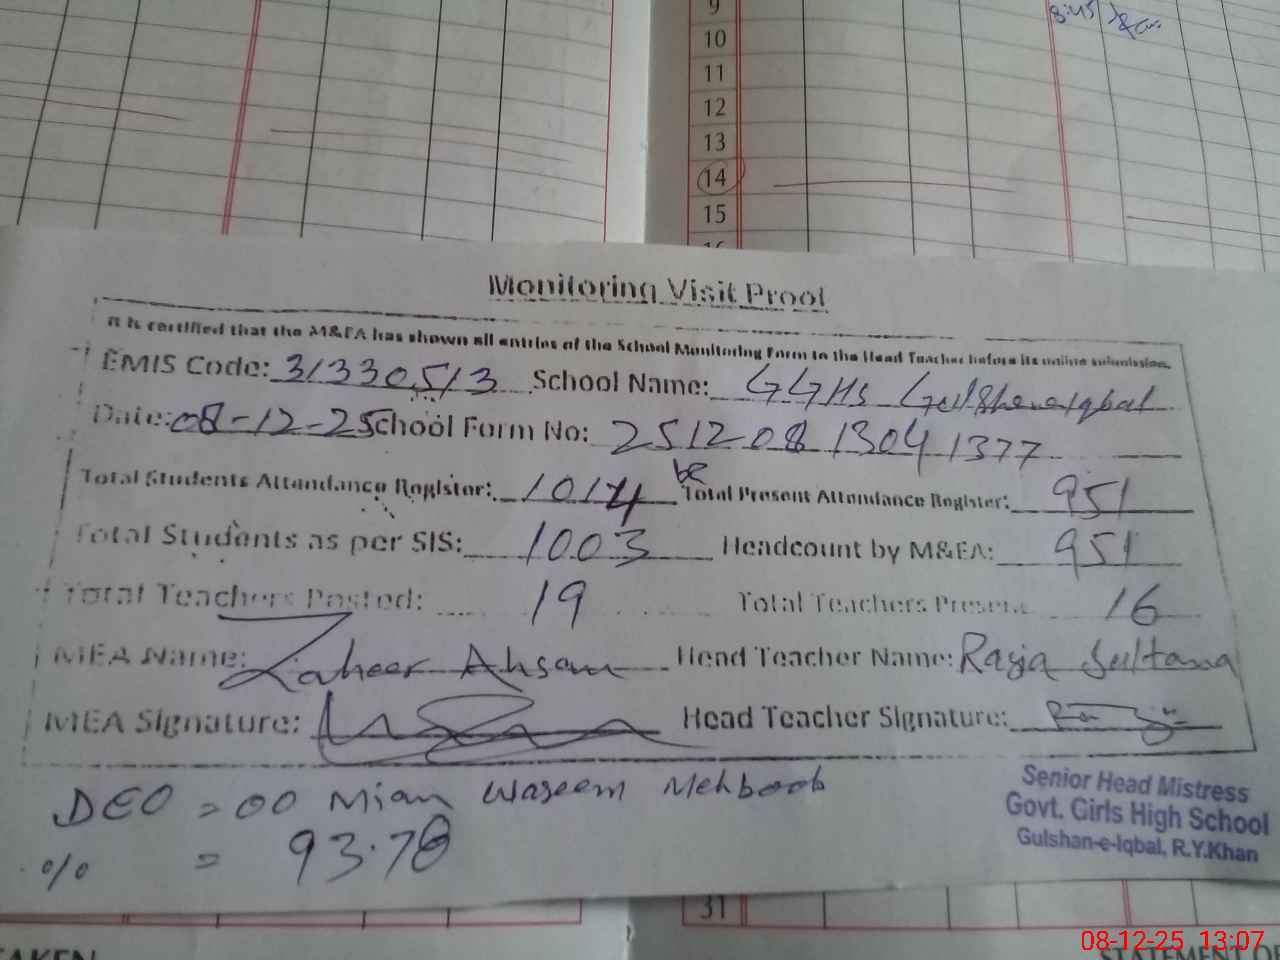 9
8:45
10
11
12
13
14
15
16
Monitoring Visit Proof
It is certified that the M&EA has shown all entries of the School Monitoring Form to the Head Teacher before its online submission.
EMIS Code: 31330513 School Name: GGHS Gulshan e Iqbal
Date: 08-12-25 School Form No: 251208 1304 1377
Total Students Attandance Register: 1014 Total Present Attendance Register: 951
Total Students as per SIS: 1003 Headcount by M&EA: 951
Total Teachers Posted: 19 Total Teachers Present 16
MEA Name: Zaheer Ahsan Head Teacher Name: Razia Sultana
MEA Signature: Head Teacher Signature:
DEO = 00 Mian Waseem Mehboob
% = 93.78
Senior Head Mistress
Govt. Girls High School
Gulshan-e-Iqbal, R.Y.Khan
31
TAKEN
STATEMENT OF
08-12-25 13:07